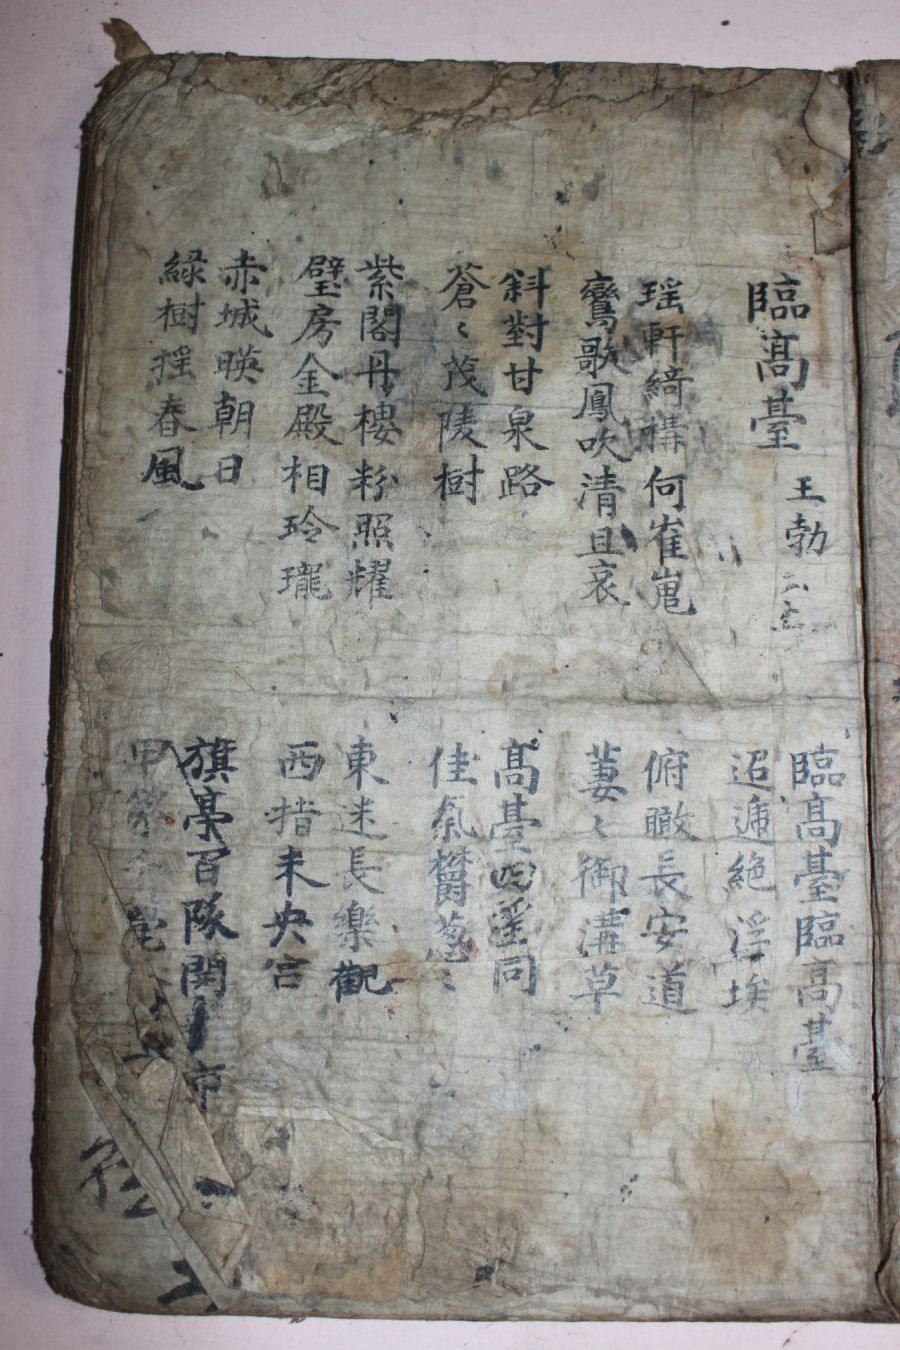 臨高臺 王勃
臨高臺臨高臺
迢逓絶浮埃
瑶軒綺構何崔嵬
鸞歌鳳吹清且哀
俯瞰長安道
萋〻御溝草
斜對甘泉路
蒼〻茂陵樹
高臺四望同
佳氣欝葱〻
紫閣丹樓粉照耀
璧房金殿相玲瓏
東迷長樂觀
西措未央宮
赤城暎朝日
緑樹揺春風
旗亭百隊開市
甲第甍